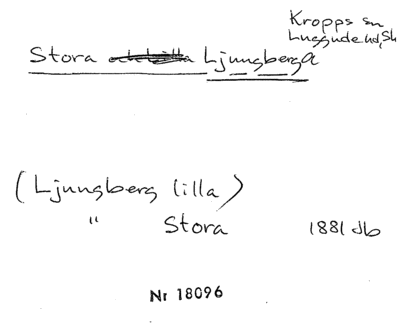 Kropps sn
Luggude hd, Sk
Stora Ljungberga
(Ljungberg lilla)
" Stora 1881 db
Nr 18096